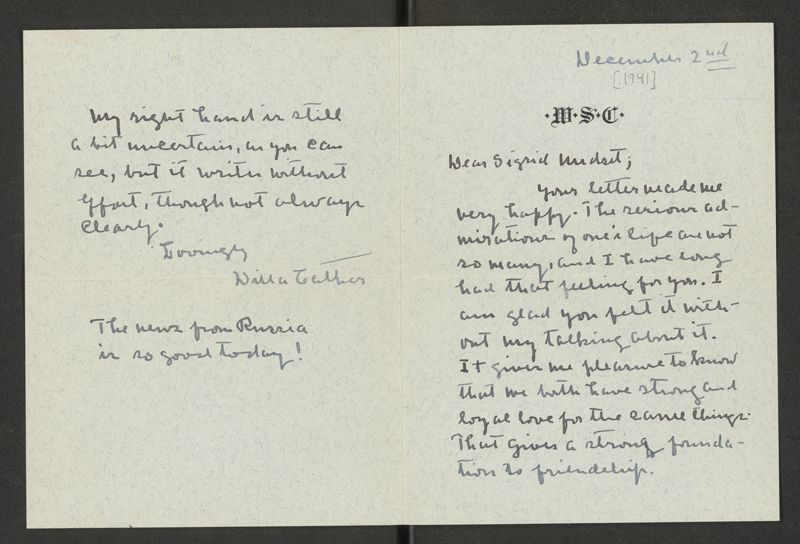 December 2nd
[1941]
·W·S·C·
Dear Sigrid Undset;
Your letter made me
very happy. The serious ad-
mirations of one's life are not
so many, and I have long
had that feeling for you. I
am glad you felt it with-
out my talking about it.
It gives me pleasure to know
that we both have strong and
loyal love for the same things.
That gives a strong founda-
tion to friendship.
My right hand is still
a bit uncertain, as you can
see, but it writes without
effort, though not always
clearly.
Lovingly
Willa Cather
The news from Russia
is so good today!